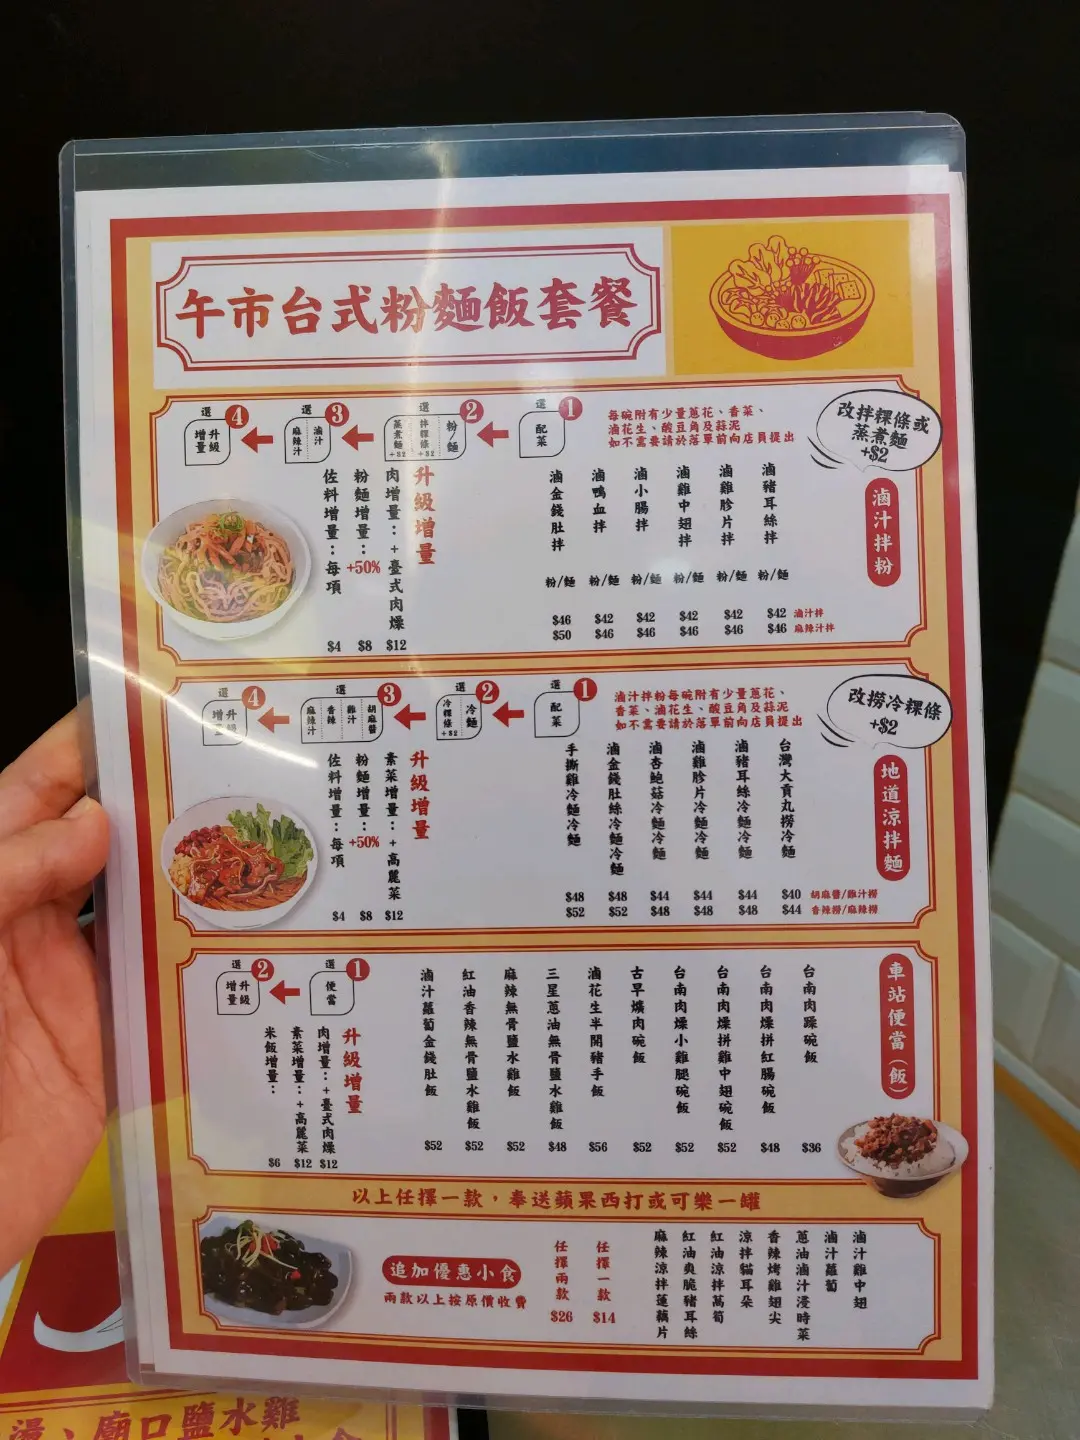 午市台式粉麵飯套餐
改拌粿條或
蒸煮麵
+$2
滷汁拌粉
每碗附有少量蔥花、香菜、
滷花生、酸豆角及蒜泥
如不需要請於落單前向店員提出
選 1 配菜
選 2 粉/麵 拌粿條+$2 蒸煮麵+$2
選 3 滷汁 麻辣汁
選 4 升級增量
滷豬耳絲拌 粉/麵 $42 $46
滷雞胗片拌 粉/麵 $42 $46
滷雞中翅拌 粉/麵 $42 $46
滷小腸拌 粉/麵 $42 $46
滷鴨血拌 粉/麵 $42 $46
滷金錢肚拌 粉/麵 $46 $50
滷汁拌
麻辣汁拌
升級增量
肉增量：+臺式肉燥 $12
粉麵增量：+50% $8
佐料增量：每項 $4
改撈冷粿條
+$2
地道涼拌麵
滷汁拌粉每碗附有少量蔥花、
香菜、滷花生、酸豆角及蒜泥
如不需要請於落單前向店員提出
選 1 配菜
選 2 冷麵 冷粿條+$2
選 3 胡麻醬 雞汁 香辣 麻辣汁
選 4 升級增量
台灣大貢丸撈冷麵 $40 $44
滷豬耳絲冷麵冷麵 $44 $48
滷雞胗片冷麵冷麵 $44 $48
滷杏鮑菇冷麵冷麵 $44 $48
滷金錢肚絲冷麵冷麵 $48 $52
手撕雞冷麵冷麵 $48 $52
胡麻醬/雞汁撈
香辣撈/麻辣撈
升級增量
素菜增量：+高麗菜 $12
粉麵增量：+50% $8
佐料增量：每項 $4
車站便當（飯）
選 1 便當
選 2 升級增量
台南肉踩碗飯 $36
台南肉燥拼紅腸碗飯 $48
台南肉燥拼雞中翅碗飯 $52
台南肉燥小雞腿碗飯 $52
古早爌肉碗飯 $52
滷花生半開豬手飯 $56
三星蔥油無骨鹽水雞飯 $48
麻辣無骨鹽水雞飯 $52
紅油香辣無骨鹽水雞飯 $52
滷汁蘿蔔金錢肚飯 $52
升級增量
肉增量：+臺式肉燥 $12
素菜增量：+高麗菜 $12
米飯增量： $6
以上任擇一款，奉送蘋果西打或可樂一罐
滷汁雞中翅
滷汁蘿蔔
蔥油滷汁浸時菜
香辣烤雞翅尖
涼拌貓耳朵
紅油涼拌萵筍
紅油爽脆豬耳絲
麻辣涼拌蓮藕片
任擇一款 $14
任擇兩款 $26
追加優惠小食
兩款以上按原價收費
廟口鹽水雞